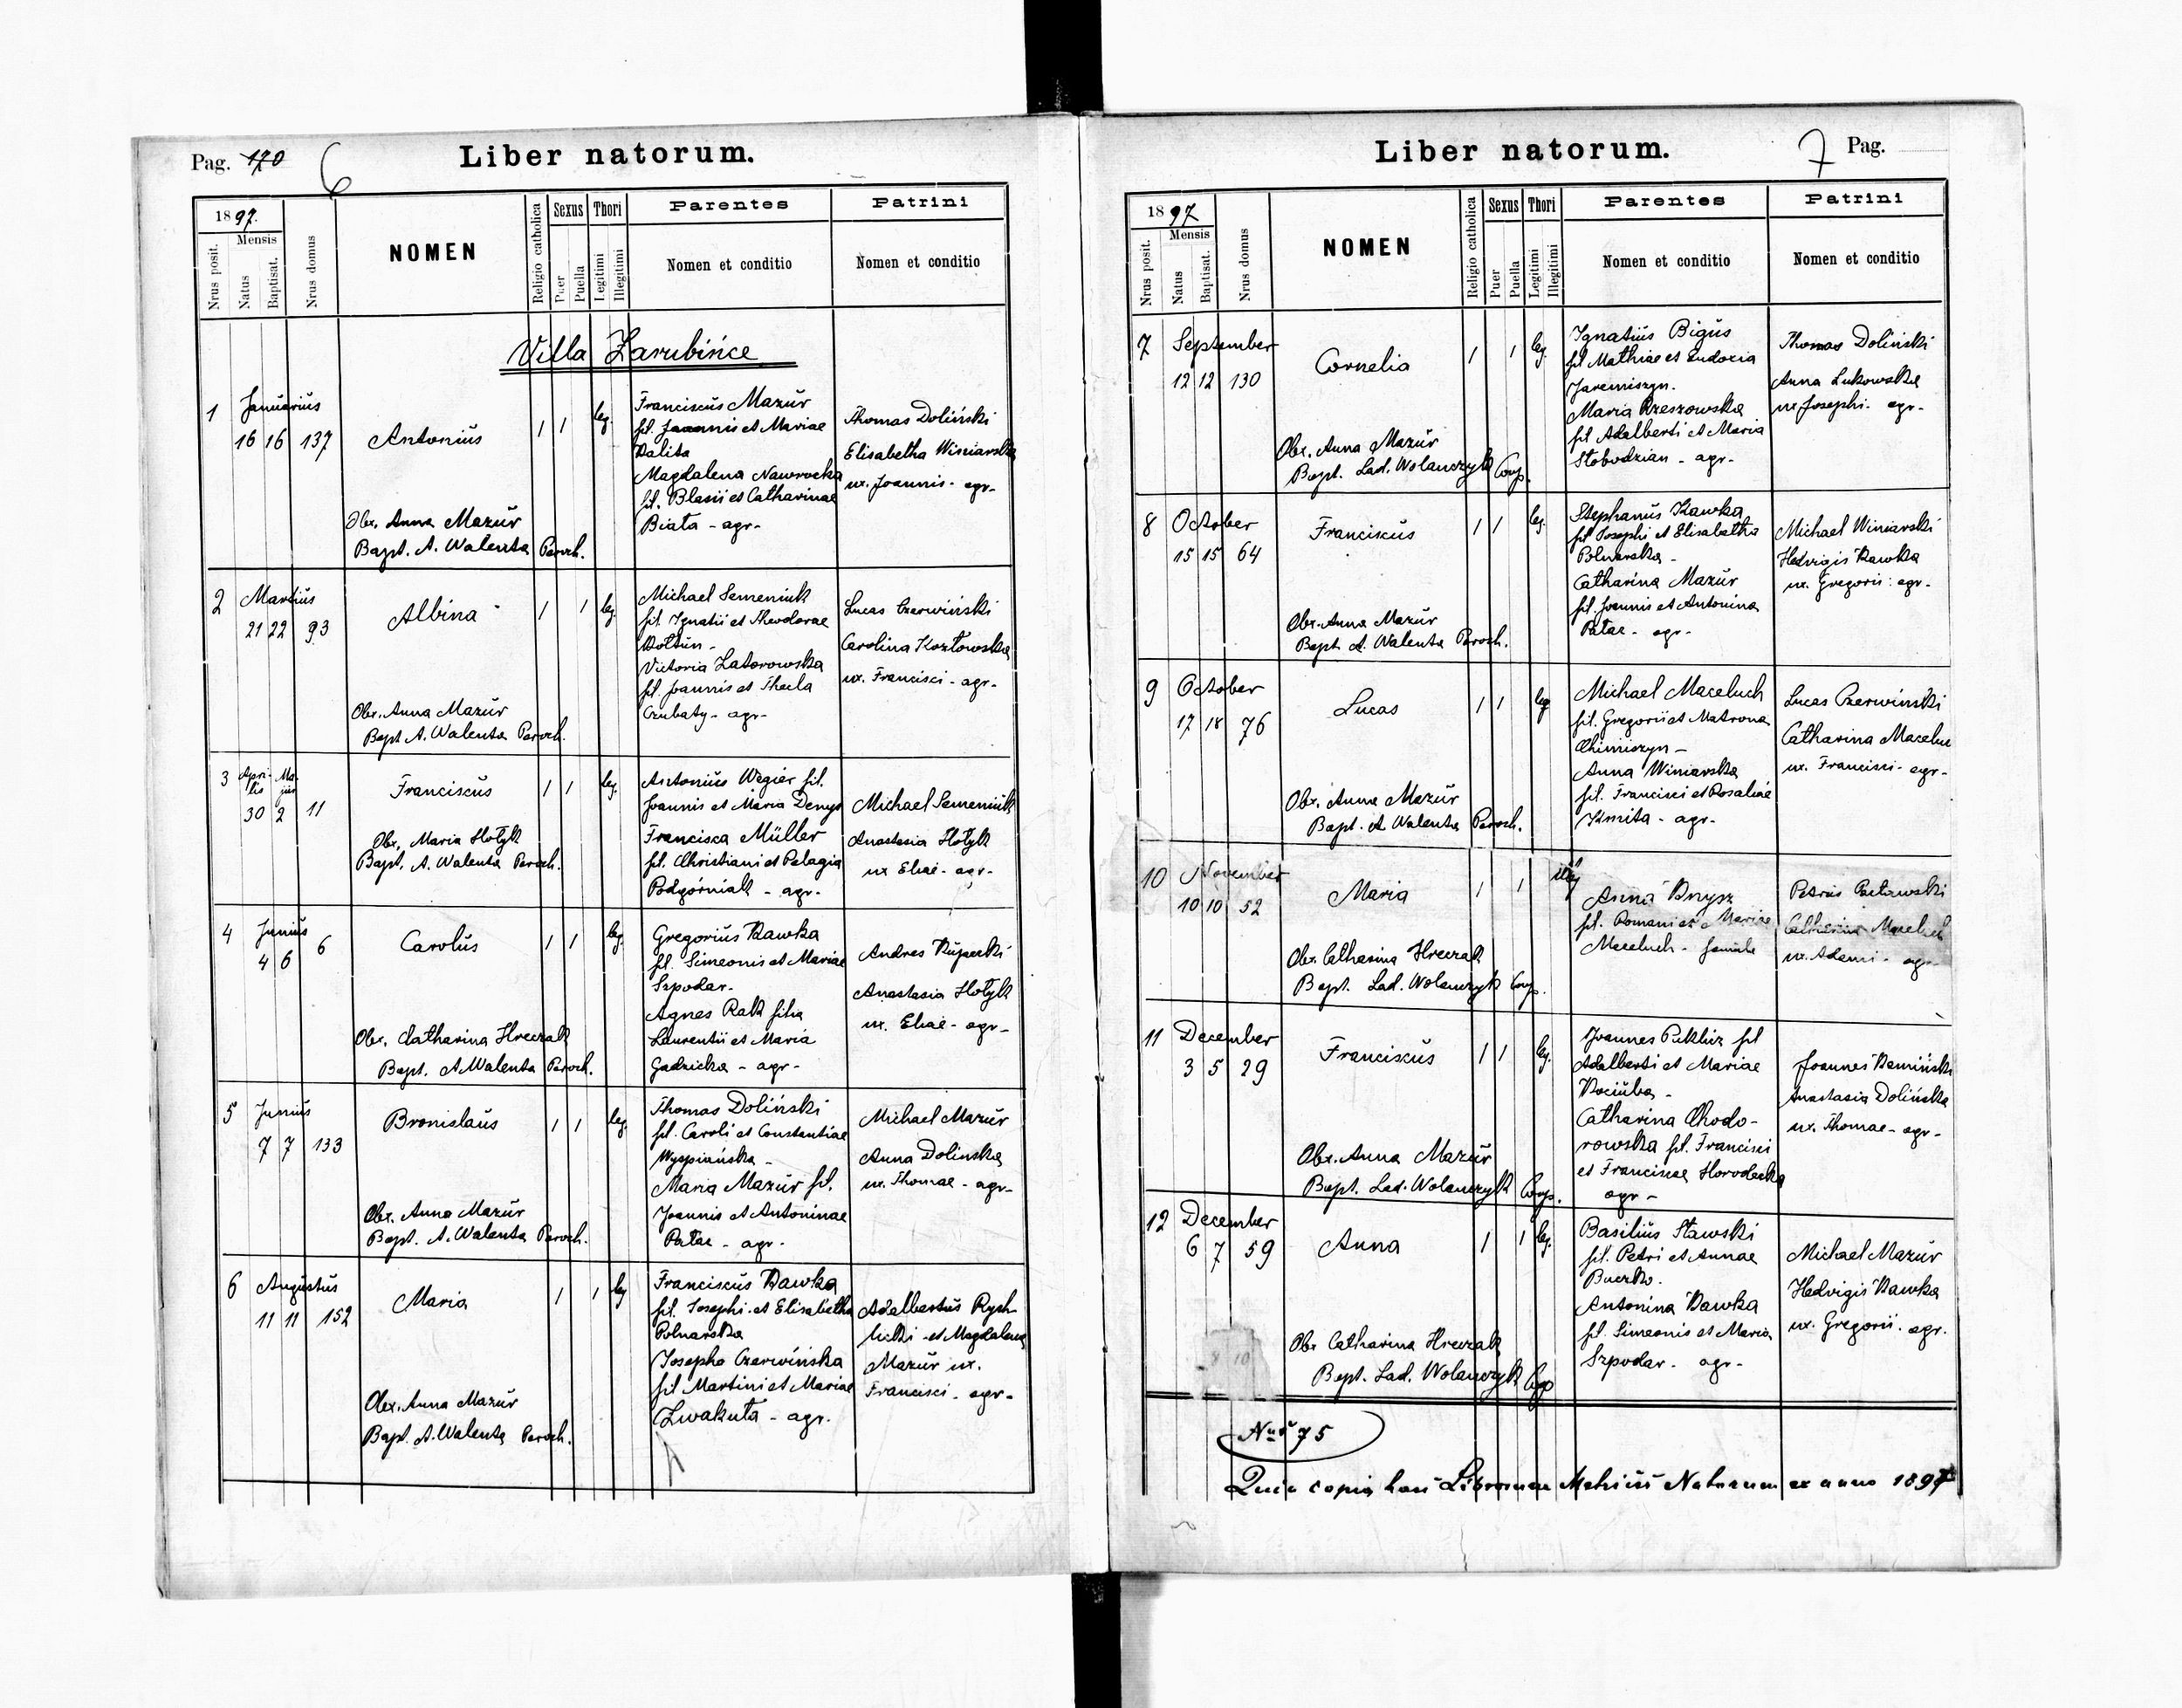 Pag. 170 6 Liber natorum.
1897.
Nrus posit.
Mensis
Natus
Baptisat.
Nrus domus
NOMEN
Religio catholica
Sexus
Puer
Puella
Thori
Legitimi
Illegitimi
Parentes
Nomen et conditio
Patrini
Nomen et conditio
Villa Zarubińce
1 Januarius
16 16 137
Antonius
1 1 leg.
Franciscus Mazur
fil. Joannis et Mariae
Kalita
Magdalena Nawrocka
fil. Blasii et Catharinae
Biała - agr-
Thomas Doliński
Elisabetha Winiarska
ux. Joannis - agr-
Obx. Anna Mazur
Bapt. A. Walenta Paroch.
2 Martius
21 22 93
Albina
1 1 leg.
Michael Semeniuk
fil. Ignatii et Theodorae
Kołtun -
Victoria Zatorowska
fil. Joannis et Thecla
Czubaty - agr-
Lucas Czerwiński
Carolina Kozłowska
ux. Francisci - agr-
Obx. Anna Mazur
Bapt A. Walenta Paroch.
3 Aprilis Majus
30 2 11
Franciscus
1 1 leg.
Antonius Węgier fil.
Joannis et Maria Denys
Francisca Müller
fil. Christiani et Pelagia
Podgórniak - agr-
Michael Semeniuk
Anastasia Hołyk
ux Eliae - agr-
Obx. Maria Hołyk
Bapt. A. Walenta Paroch.
4 Junius
4 6 6
Carolus
1 1 leg.
Gregorius Kawka
fil. Simeonis et Mariae
Szpodar.
Agnes Rak filia
Laurentii et Maria
Gadzicka - agr-
Andreas Rupecki
Anastasia Hołyk
ux. Eliae - agr-
Obx. Catharina Hreczak
Bapt. A Walenta Paroch.
5 Junius
7 7 133
Bronislaus
1 1 leg.
Thomas Doliński
fil. Caroli et Constantiae
Wyspiańska -
Maria Mazur fil.
Joannis et Antoninae
Patae - agr-
Michael Mazur
Anna Dolinska
ux. Thomae - agr-
Obx. Anna Mazur
Bapt. A. Walenta Paroch.
6 Augustus
11 11 152
Maria
1 1 leg
Franciscus Kawka
fil. Josephi et Elisabetha
Polnarska
Josepha Czerwińska
fil Martini et Mariae
Zwakuta - agr.
Adalbertus Rych-
licki et Magdalena
Mazur ux.
Francisci - agr-
Obx. Anna Mazur
Bapt. A. Walenta Paroch.
Liber natorum. 7 Pag.
1897
Nrus posit.
Mensis
Natus
Baptisat.
Nrus domus
NOMEN
Religio catholica
Sexus
Puer
Puella
Thori
Legitimi
Illegitimi
Parentes
Nomen et conditio
Patrini
Nomen et conditio
7 September
12 12 130
Cornelia
1 1 leg.
Ignatius Bigus
fil Mathiae et Eudoxia
Jaremiszyn.
Maria Rzeszowska
fil Adalberti et Maria
Słobodzian - agr-
Thomas Doliński
Anna Lukowska
ux Josephi - agr-
Obx. Anna Mazur
Bapt. Lad. Wolanczyk Coop.
8 October
15 15 64
Franciscus
1 1 leg.
Stephanus Kawka
fil Josephi et Elisabetha
Polnarska -
Catharina Mazur
fil. Joannis et Antonina
Patae - agr-
Michael Winiarski
Hedvigis Kawka
ux. Gregorii agr-
Obx. Anna Mazur
Bapt A. Walenta Paroch.
9 October
17 18 76
Lucas
1 1 leg
Michael Maceluch
fil. Gregorii et Matrona
Chimiszyn -
Anna Winiarska
fil. Francisci et Rosaliae
Kmita - agr-
Lucas Czerwinski
Catharina Maceluc
ux. Francisci - agr-
Obx. Anna Mazur
Bapt. A Walenta Paroch.
10 November
10 10 52
Maria
1 1 illeg
Anna Knysz
fil. Romani et Mariae
Maceluch - famula
Petrus
Catharina Maceluch
ux. Adami - agr-
Obx. Catharina Hreczak
Bapt. Lad. Wolanczyk Coop.
11 December
3 5 29
Franciscus
1 1 leg.
Joannes Puklicz fil
Adalberti et Mariae
Kociuba -
Catharina Chodo-
rowska fil. Francisci
et Franciscae Horodecka
agr -
Joannes Kamiński
Anastasia Dolińska
ux. Thomae - agr-
Obx. Anna Mazur
Bapt. Lad. Wolanczyk Coop.
12 December
6 7 59
Anna
1 1 leg.
Basilius Stawski
fil. Petri et Annae
Buczko.
Antonina Kawka
fil. Simeonis et Maria
Szpodar - agr-
Michael Mazur
Hedvigis Kawka
ux. Gregorii. agr.
Obx Catharina Hreczak
Bapt. Lad. Wolanczyk Coop
Nus 75
copia Metricis Natorum ex anno 1897